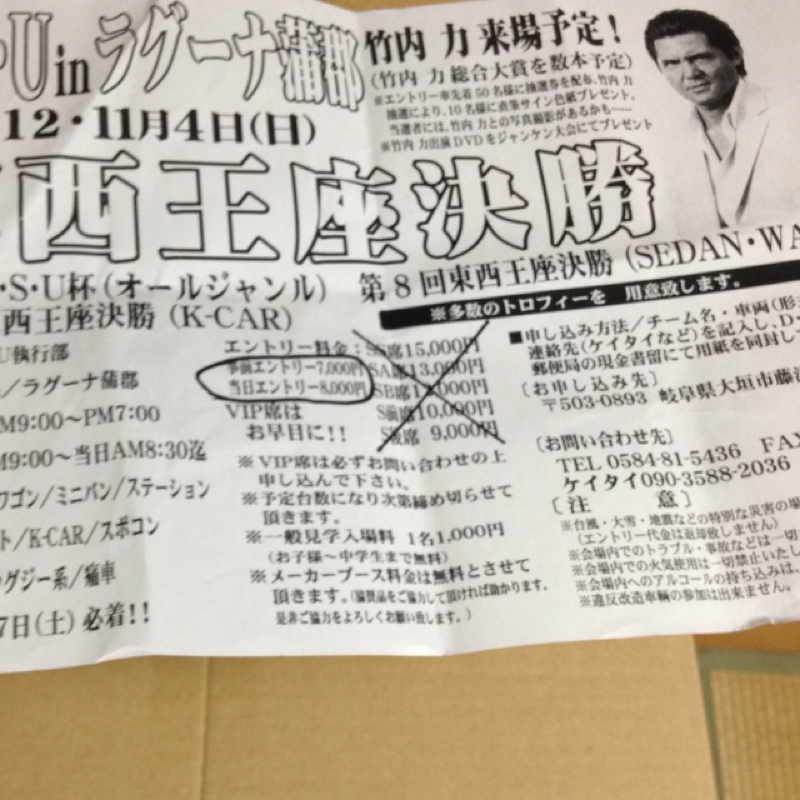 ・U in ラグーナ蒲郡
竹内 力 来場予定！
(竹内 力 総合大賞を数本予定)
※エントリー車先着50名様に抽選券を配布、竹内 力
抽選により、10名様に直筆サイン色紙プレゼント。
当選者には、竹内 力との写真撮影があるかも……
※竹内 力出演DVDをジャンケン大会にてプレゼント
12・11月4日(日)
西王座決勝
・S・U杯(オールジャンル)
第8回東西王座決勝 (SEDAN・WA
西王座決勝 (K-CAR)
※多数のトロフィーを 用意致します。
U執行部
/ラグーナ蒲郡
M9:00〜PM7:00
M9:00〜当日AM8:30迄
ワゴン/ミニバン/ステーション
ト/K-CAR/スポコン
グジー系/痛車
7日(土) 必着!!
エントリー料金：SS席15,000円
事前エントリー7,000円 SA席13,000円
当日エントリー8,000円 SB席
VIP席は S前席10,000円
お早目に!! S後席 9,000円
※VIP席は必ずお問い合わせの上
申し込んで下さい。
※予定台数になり次第締め切らせて
頂きます。
※一般見学入場料 1名1,000円
(お子様〜中学生まで無料)
※メーカーブース料金は無料とさせて
頂きます。(協賛品をご協力して頂ければ助かります。
是非ご協力をよろしくお願い致します。)
■申し込み方法/チーム名・車両(形式
連絡先(ケイタイなど)を記入し、D-
郵便局の現金書留にて用紙を同封し
〔お申し込み先〕
〒503-0893 岐阜県大垣市藤江
〔お問い合わせ先〕
TEL 0584-81-5436 FAX
ケイタイ090-3588-2036
〔注 意〕
※台風・大雪・地震などの特別な災害の場
(エントリー代金は返却致しません)
※会場内でのトラブル・事故などは一切
※会場内での火気使用は一切禁止いたし
※会場内へのアルコールの持ち込みは、
※違反改造車輌の参加は出来ません。